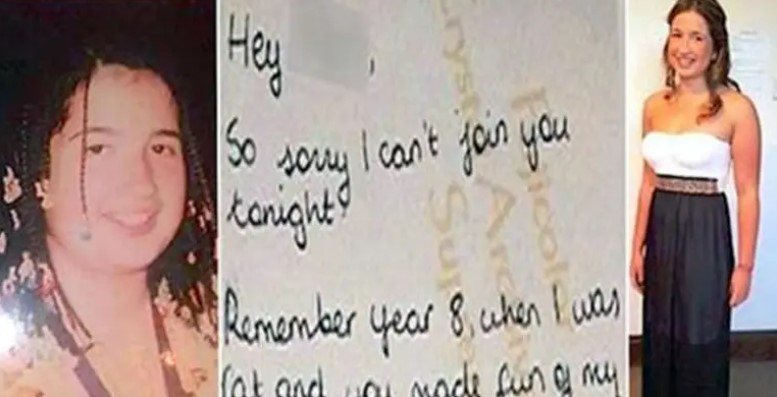 Hey ,
So sorry I can't join you
tonight.
Remember year 8, when I was
fat and you made fun of my